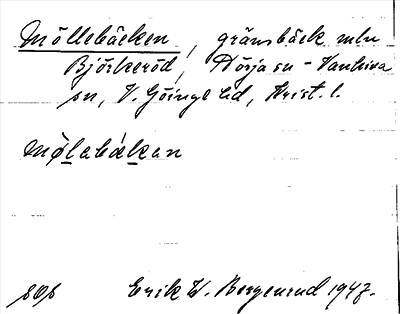 Möllebäcken, gränsbäck mln
Björkeröd, Norja sn - Vankiva
sn, V. Göinge hd, Krist. l.
Mølabækan
sos Erik W. Borgenrud 1947.